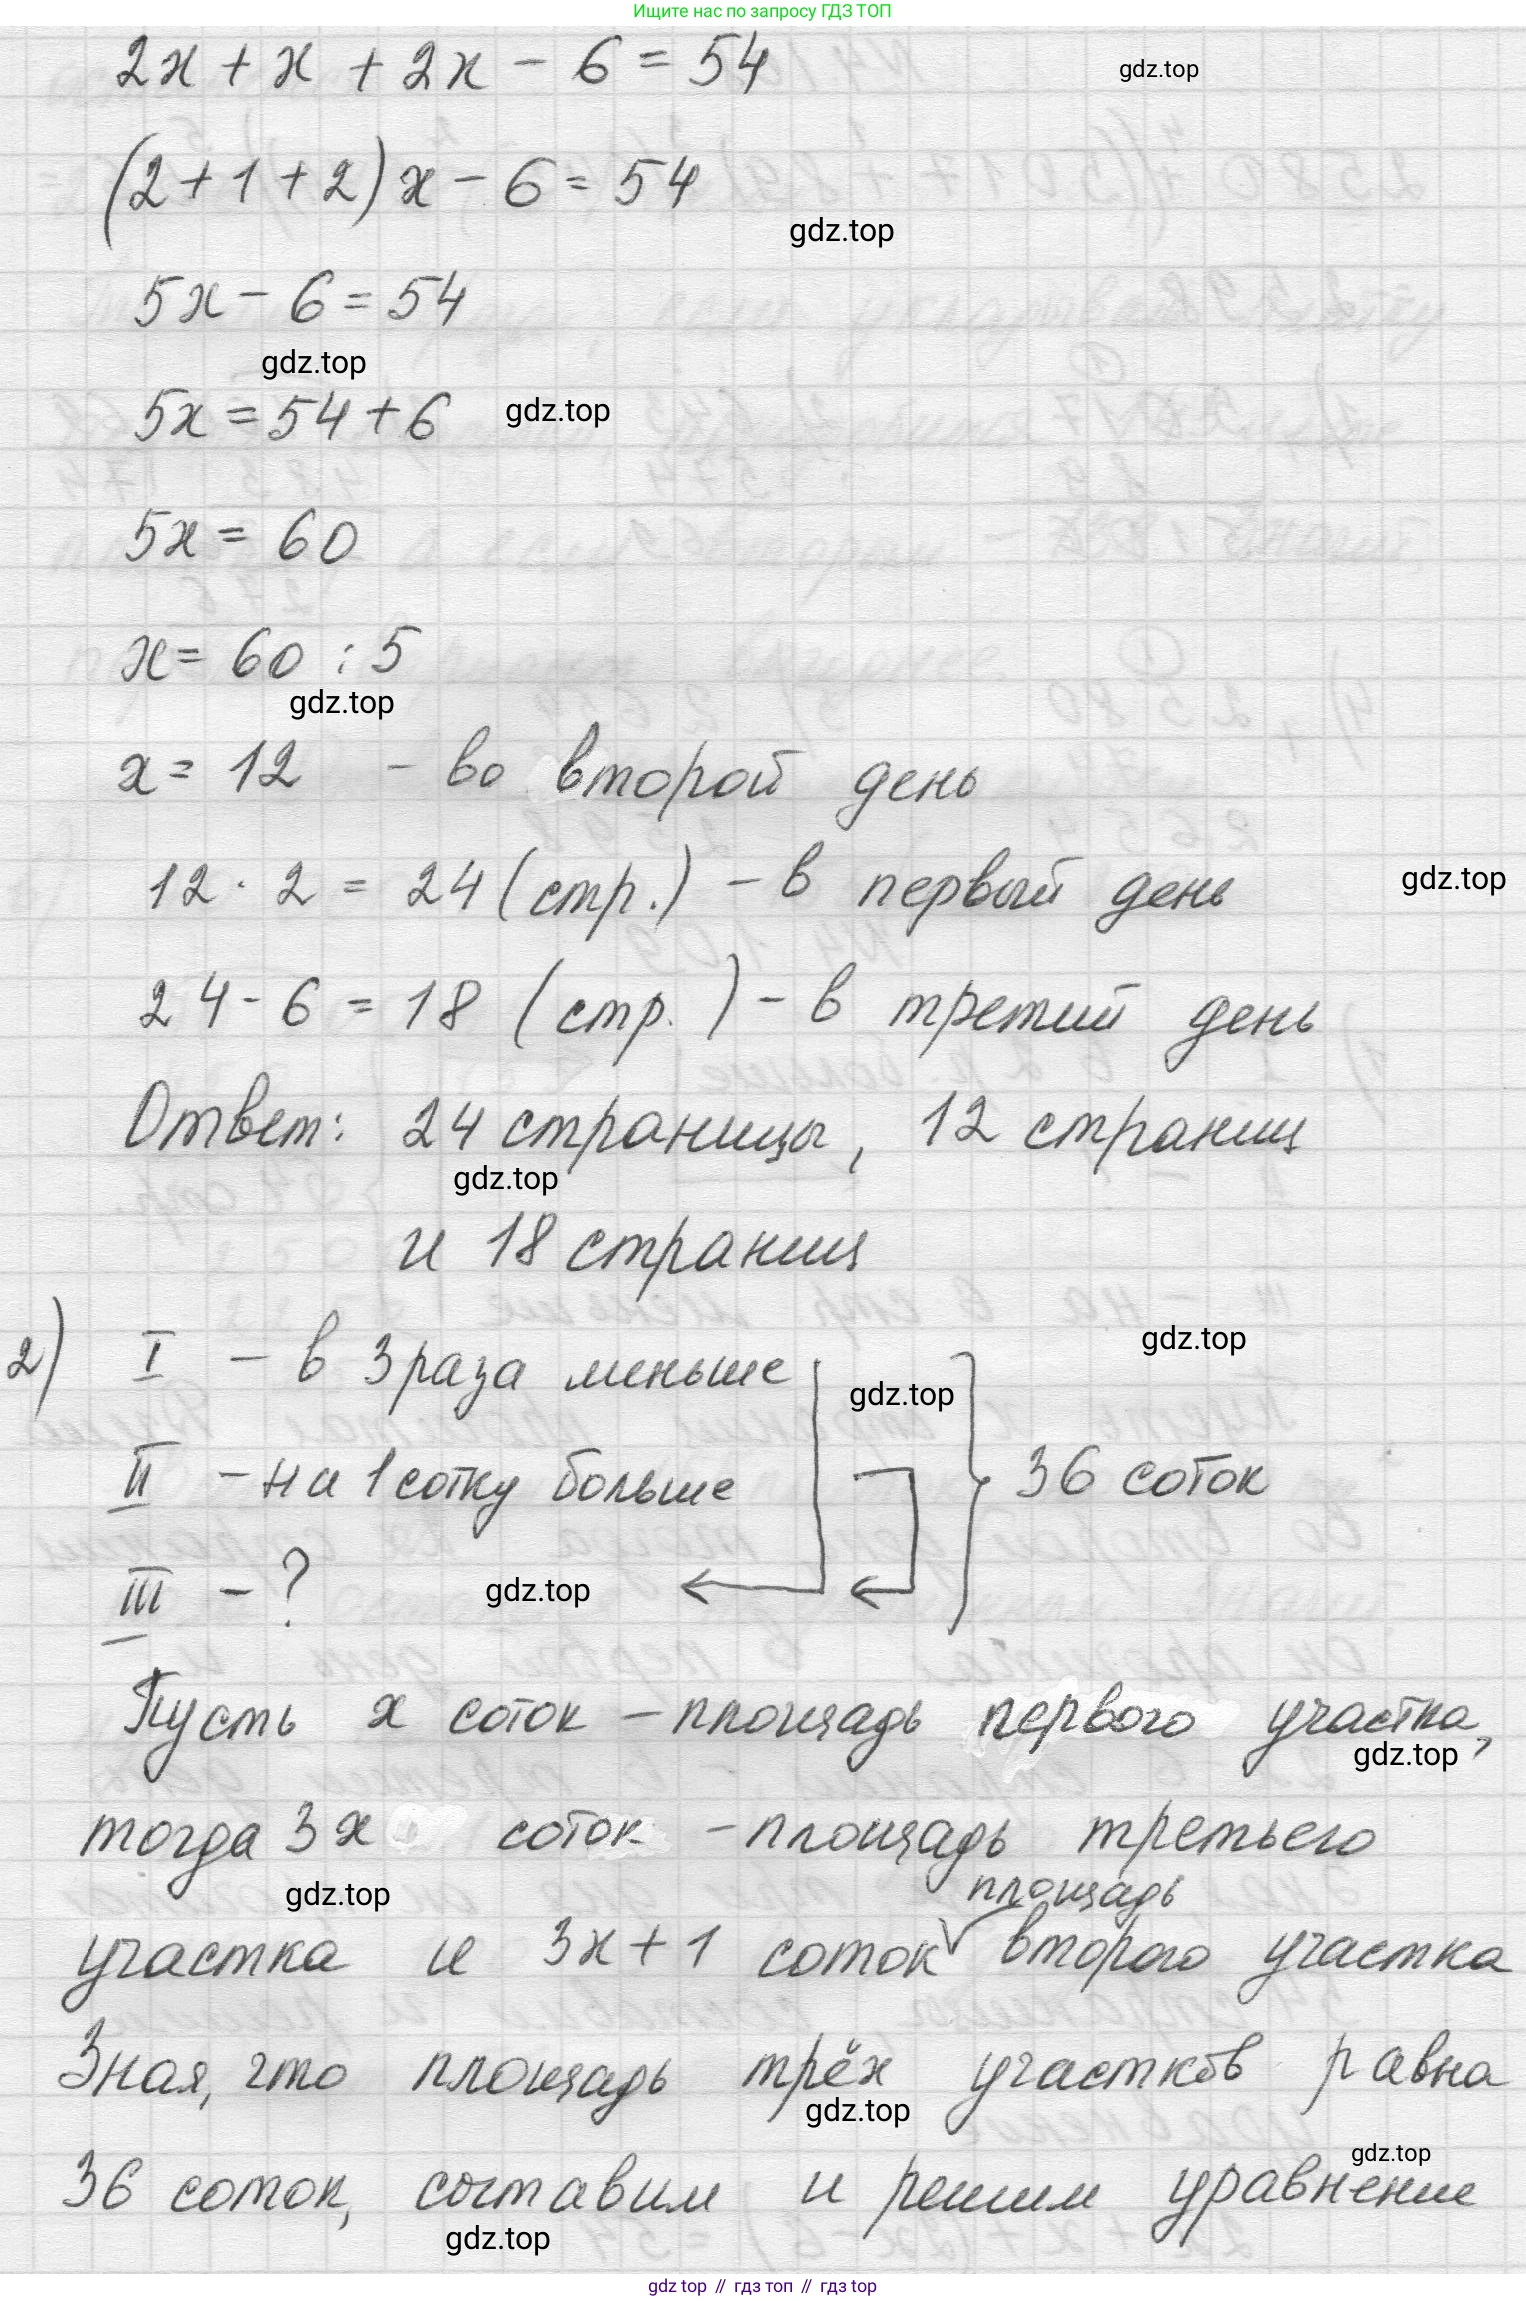 Ищите нас по запросу ГДЗ ТОП
2x + x + 2x - 6 = 54
gdz.top
(2+1+2)x - 6 = 54
gdz.top
5x - 6 = 54
gdz.top
5x = 54 + 6
gdz.top
5x = 60
x = 60 : 5
gdz.top
x = 12 - во второй день
12 · 2 = 24 (стр.) - в первый день
gdz.top
24 - 6 = 18 (стр.) - в третий день
Ответ: 24 страницы, 12 страниц
gdz.top
и 18 страниц
2) I - в 3 раза меньше
gdz.top
gdz.top
II - на 1 сотку больше
36 соток
III - ?
gdz.top
Пусть x соток - площадь первого участка,
gdz.top
тогда 3x соток - площадь третьего
gdz.top
площадь
участка и 3x + 1 соток второго участка
Зная, что площадь трёх участков равна
gdz.top
36 соток, составим и решим уравнение
gdz.top
gdz.top
gdz top // гдз топ // гдз top